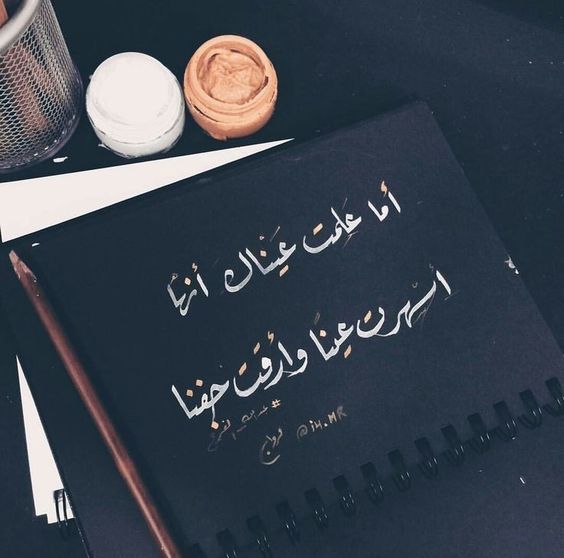 أما علمت عيناك أنها
أسهرت عينا وأرقت جفنا
@i4.MR